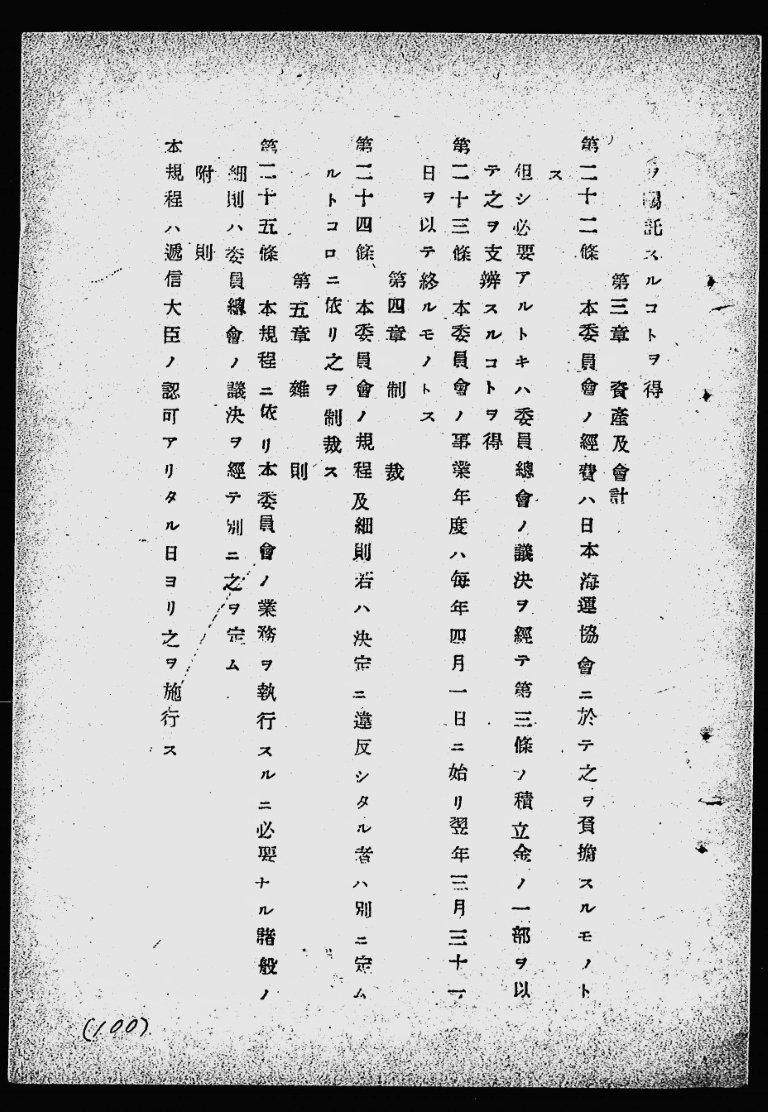 ヲ囑託スルコトヲ得
第三章 資產及會計
第二十二條 本委員會ノ經費ハ日本海運協會ニ於テ之ヲ負擔スルモノト
ス
但シ必要アルトキハ委員總會ノ議決ヲ經テ第三條ノ積立金ノ一部ヲ以
テ之ヲ支辨スルコトヲ得
第二十三條 本委員會ノ事業年度ハ每年四月一日ニ始リ翌年三月三十一
日ヲ以テ終ルモノトス
第四章 制裁
第二十四條 本委員會ノ規程及細則若ハ決定ニ違反シタル者ハ別ニ定ム
ルトコロニ依リ之ヲ制裁ス
第五章 雜則
第二十五條 本規程ニ依リ本委員會ノ業務ヲ執行スルニ必要ナル諸般ノ
細則ハ委員總會ノ議決ヲ經テ別ニ之ヲ定ム
附則
本規程ハ遞信大臣ノ認可アリタル日ヨリ之ヲ施行ス
(100)